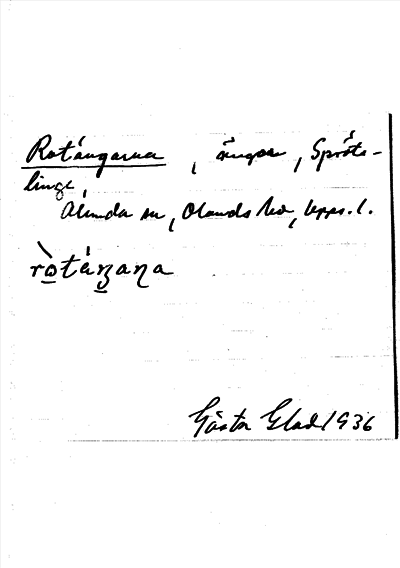 Rotängarna, ängar, Spröts-
linge
Alunda sn, Olands hd, Upps. l.
ròtáŋaɳa
Gösta Elad 1936